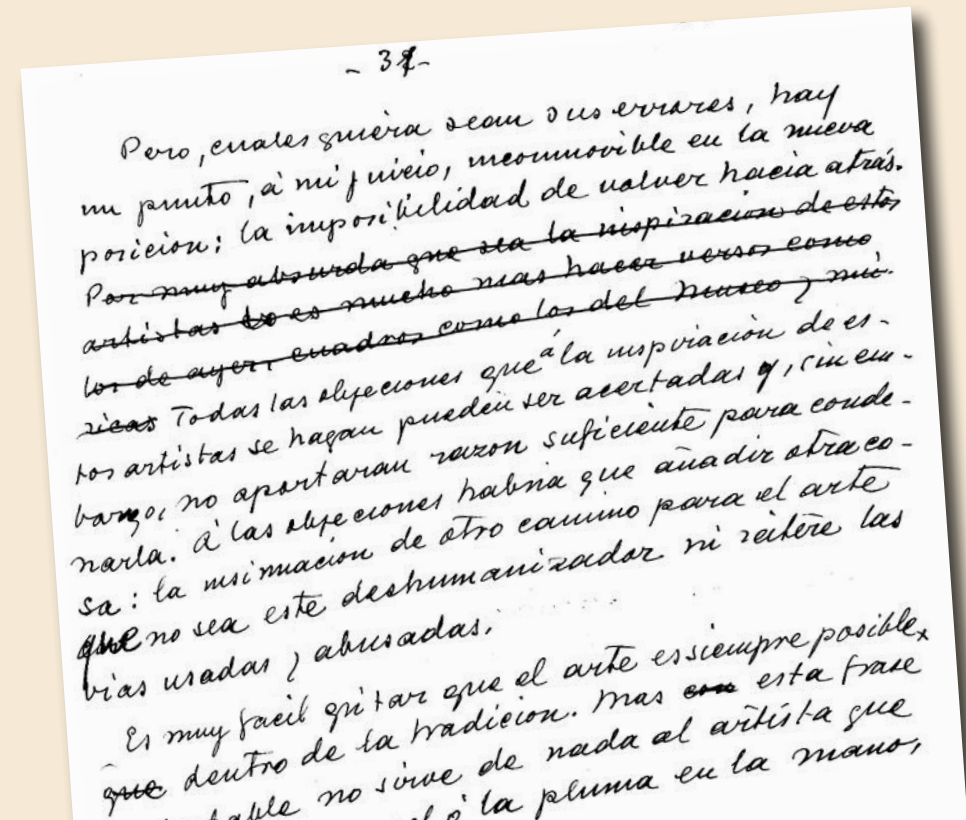 - 37 -
Pero, cualesquiera sean sus errores, hay
un punto, á mi juicio, inconmovible en la nueva
posicion: la imposibilidad de volver hacia atrás.
Por muy absurda que sea la inspiracion de estos
artistas lo es mucho mas hacer versos como
los de ayer, cuadros como los del museo y mú-
sicas Todas las objeciones que á la inspiración de es-
tos artistas se hagan pueden ser acertadas y, sin em-
bargo, no aportaran razon suficiente para conde-
narla. A las objeciones habria que añadir otra co-
sa: la insinuación de otro camino para el arte
que no sea este deshumanizador ni reitere las
vias usadas y abusadas.
Es muy facil gritar que el arte es siempre posible
que dentro de la tradicion. Mas con esta frase
no sirve de nada al artista que
ó la pluma en la mano,